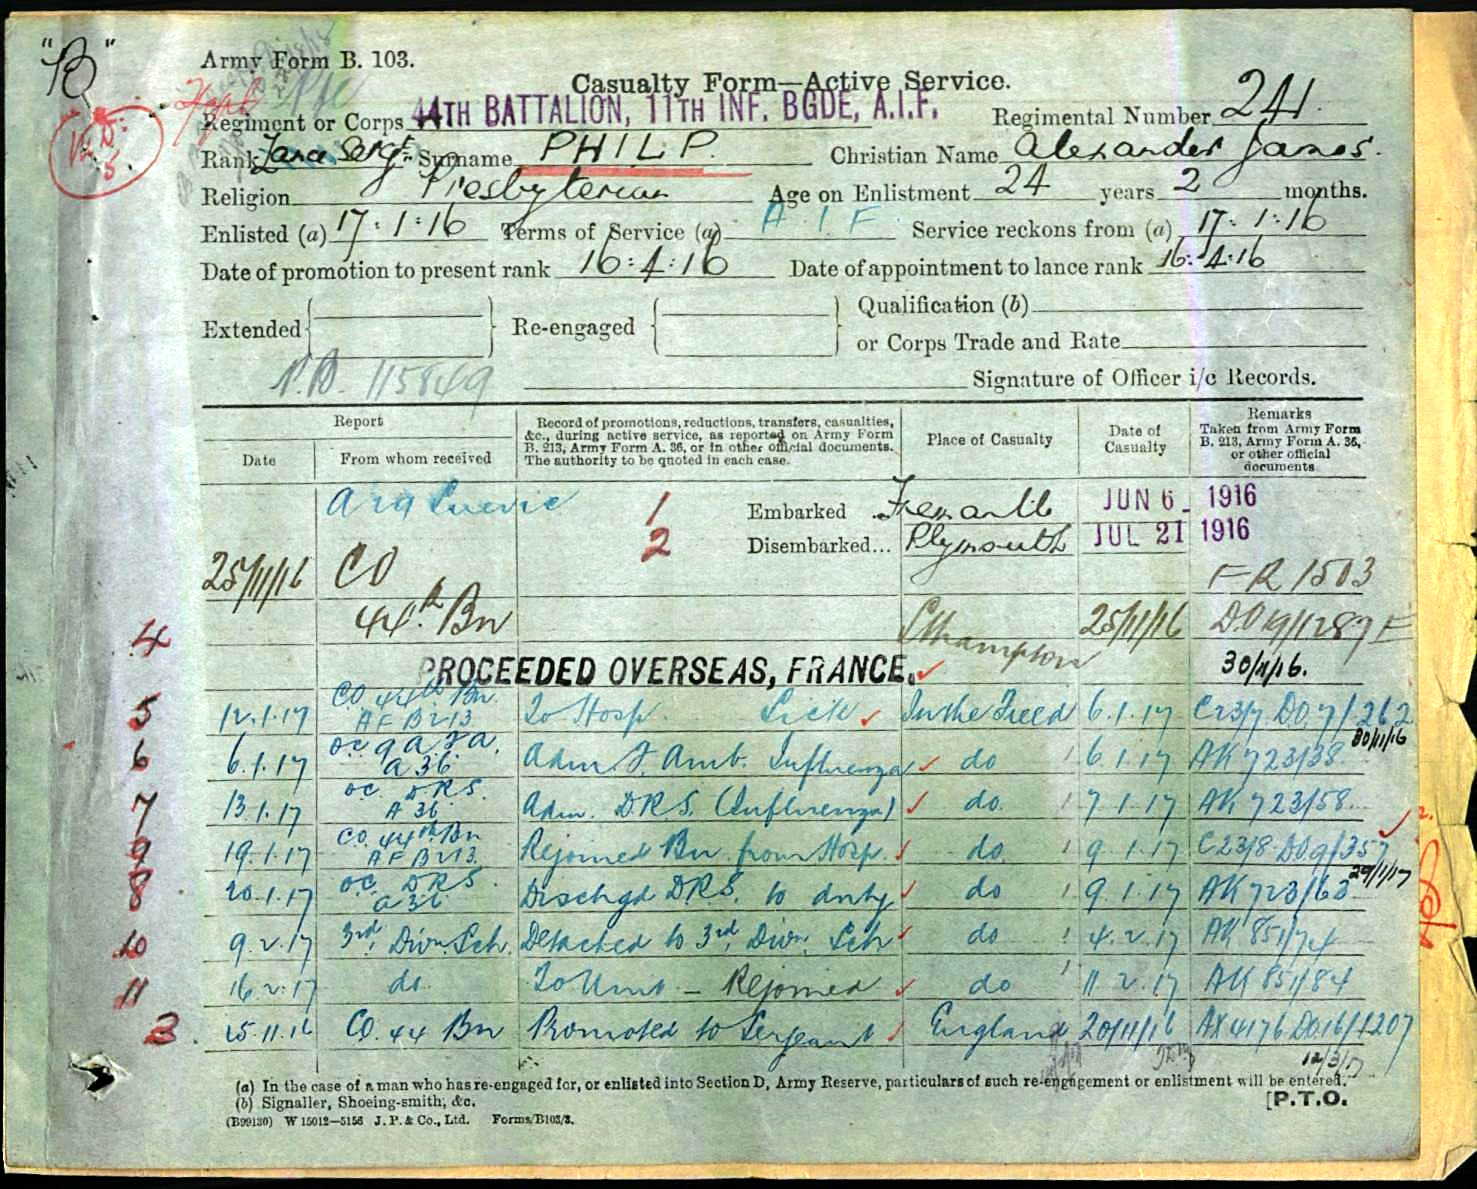 "B"
Army Form B. 103.
Casualty Form—Active Service.
Regiment or Corps 44TH BATTALION, 11TH INF. BGDE, A.I.F. Regimental Number 241
Rank Lance Sergt. Surname PHILP. Christian Name Alexander James.
Religion Presbyterian Age on Enlistment 24 years 2 months.
Enlisted (a) 17:1:16 Terms of Service (a) A I F Service reckons from (a) 17:1:16
Date of promotion to present rank 16:4:16 Date of appointment to lance rank 16:4:16
Extended Re-engaged Qualification (b)
or Corps Trade and Rate
115849
Signature of Officer i/c Records.
Report
Date From whom received
Record of promotions, reductions, transfers, casualties, &c., during active service, as reported on Army Form B. 213, Army Form A. 36, or in other official documents. The authority to be quoted in each case.
Place of Casualty
Date of Casualty
Remarks
Taken from Army Form B. 213, Army Form A. 36, or other official documents
1 Embarked Fremantle JUN 6 1916
2 Disembarked... Plymouth JUL 21 1916
25/11/16 CO FR 1503
4 44th Bn Sthampton 25/11/16
PROCEEDED OVERSEAS, FRANCE. 30/11/16.
5 12.1.17 CO 44th Bn AF B213 To Hosp. Sick In the Field 6.1.17 C23/7 DO 7/262
30/11/16
6 6.1.17 OC 9 A F A. A 36 Adm. F. Amb. Influenza do 6.1.17 AK 723/38
7 13.1.17 OC DRS. A 36 Adm. DRS. (Influenza) do 7.1.17 AK 723/58
9 19.1.17 CO. 44th Bn AF B213 Rejoined Bn from Hosp. do 9.1.17 C23/8 DO 9/357
29/1/17
8 20.1.17 OC DRS. A 36 Dischgd DRS. to duty do 9.1.17 AK 723/63
10 9.2.17 3rd Divn. Sch. Detached to 3rd Divn. Sch do 4.2.17 AK 851/74
11 16.2.17 do. To Unit - Rejoined do 11.2.17 AK 851/84
3 25.11.16 CO. 44 Bn Promoted to Sergeant England 20/11/16 AX 4176 DO 16/1207
12/3/17
(a) In the case of a man who has re-engaged for, or enlisted into Section D, Army Reserve, particulars of such re-engagement or enlistment will be entered.
(b) Signaller, Shoeing-smith, &c.
[P.T.O.
(B99130) W 15012—5156 J. P. & Co., Ltd. Forms/B103/3.